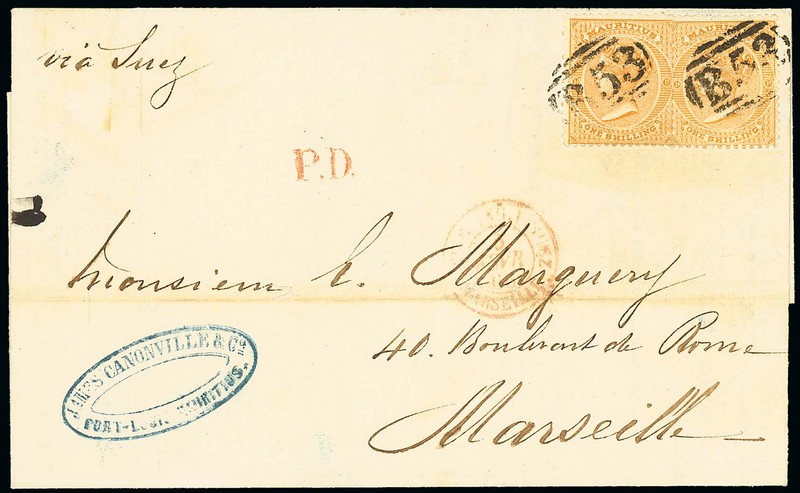 via Suez
MAURITIUS MAURITIUS
B53 B53
ONE SHILLING ONE SHILLING
P.D.
MARSEILLE
Monsieur E. Marguery
40. Boulevart de Rome
Marseille
JAMES CANONVILLE & Co.
PORT-LOUIS, MAURITIUS.